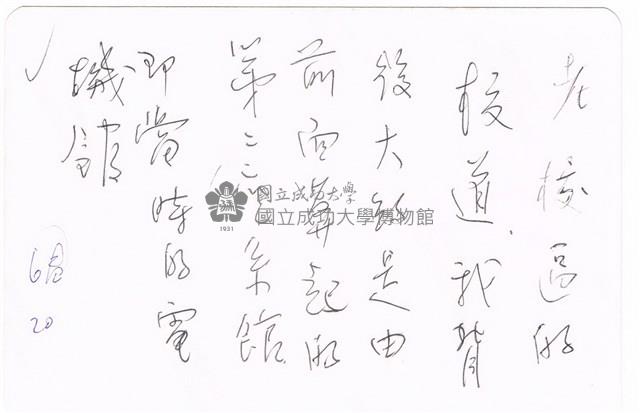 老校區的
校道，我背
後大約是由
前面算起的
第二系館
即當時的電
機館
6
20
國立成功大學
國立成功大學博物館
1931